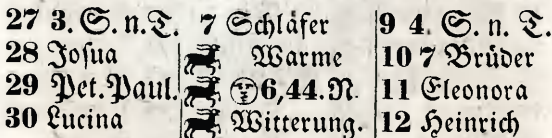 27 3. S. n. T. 7 Schläfer 9 4. S. n. T.
28 Josua Warme 10 7 Brüder
29 Pet. Paul. 6,44. N. 11 Eleonora
30 Lucina Witterung. 12 Heinrich